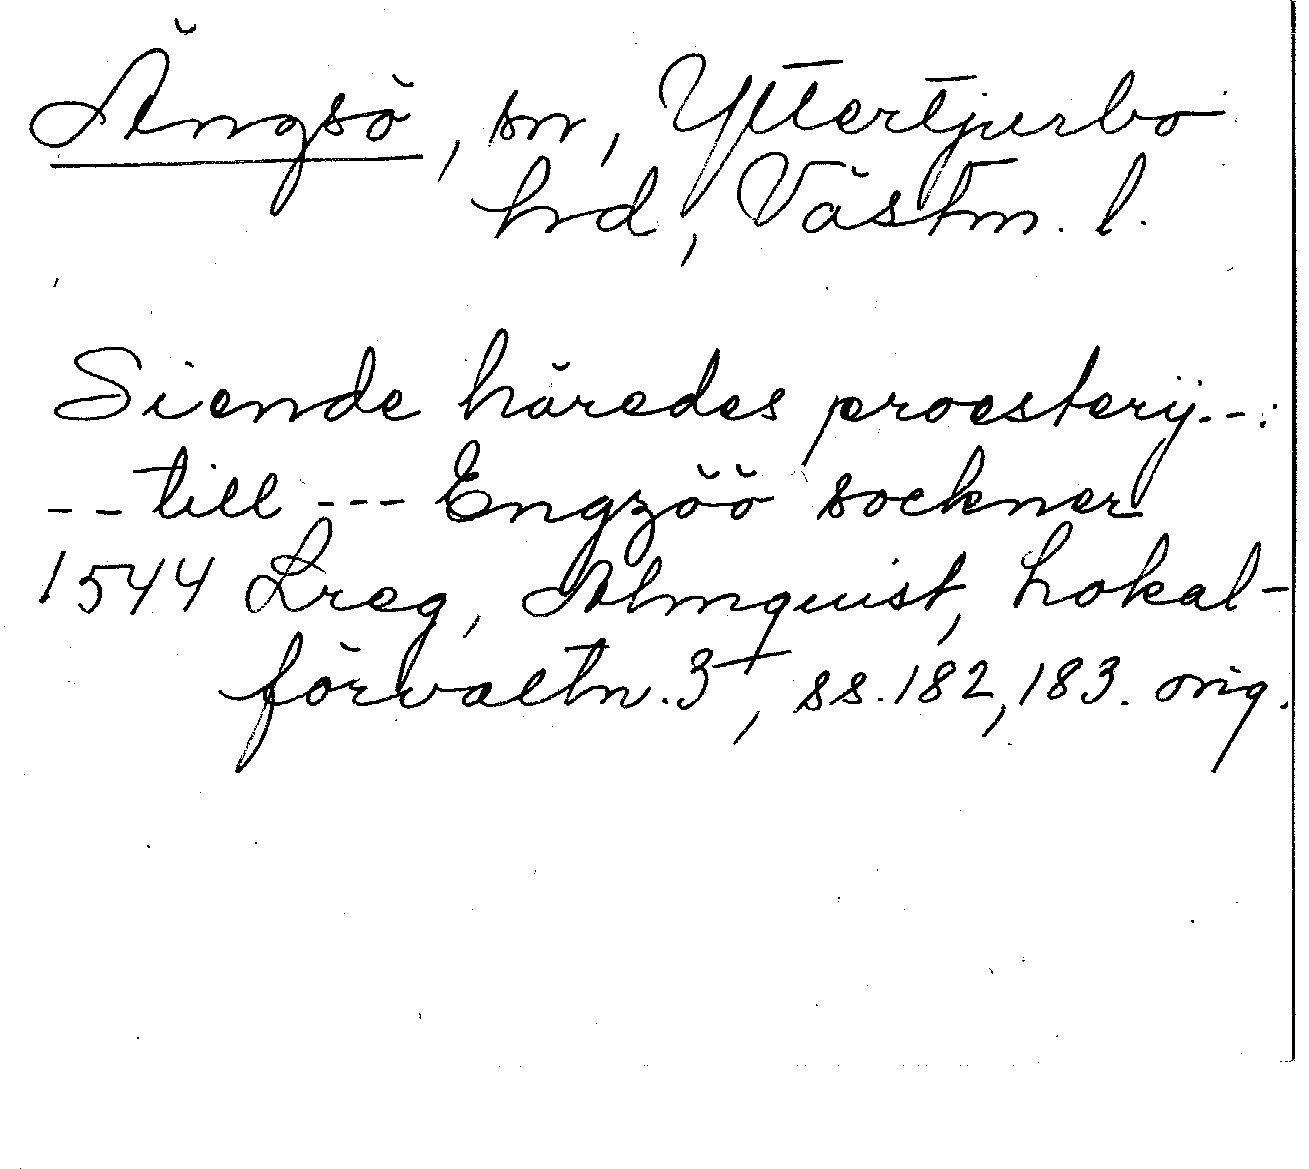 Ängsö, sn, Yttertjurbo
hrd, Västm. l.
Siende häredes proesterij.-.:
-- till --- Engzöö sockner
1544 Lreg, Almquist, Lokal-
förvaltn. 3+, ss. 182, 183. orig.